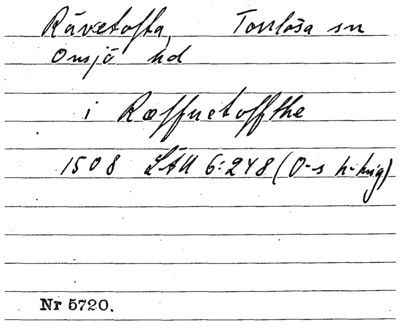 Rävetofta, Torrlösa sn
Onsjö hd
i Ræffuetoffthe
1508 LÄU 6:248 (O-s h-hrig)
Nr 5720.